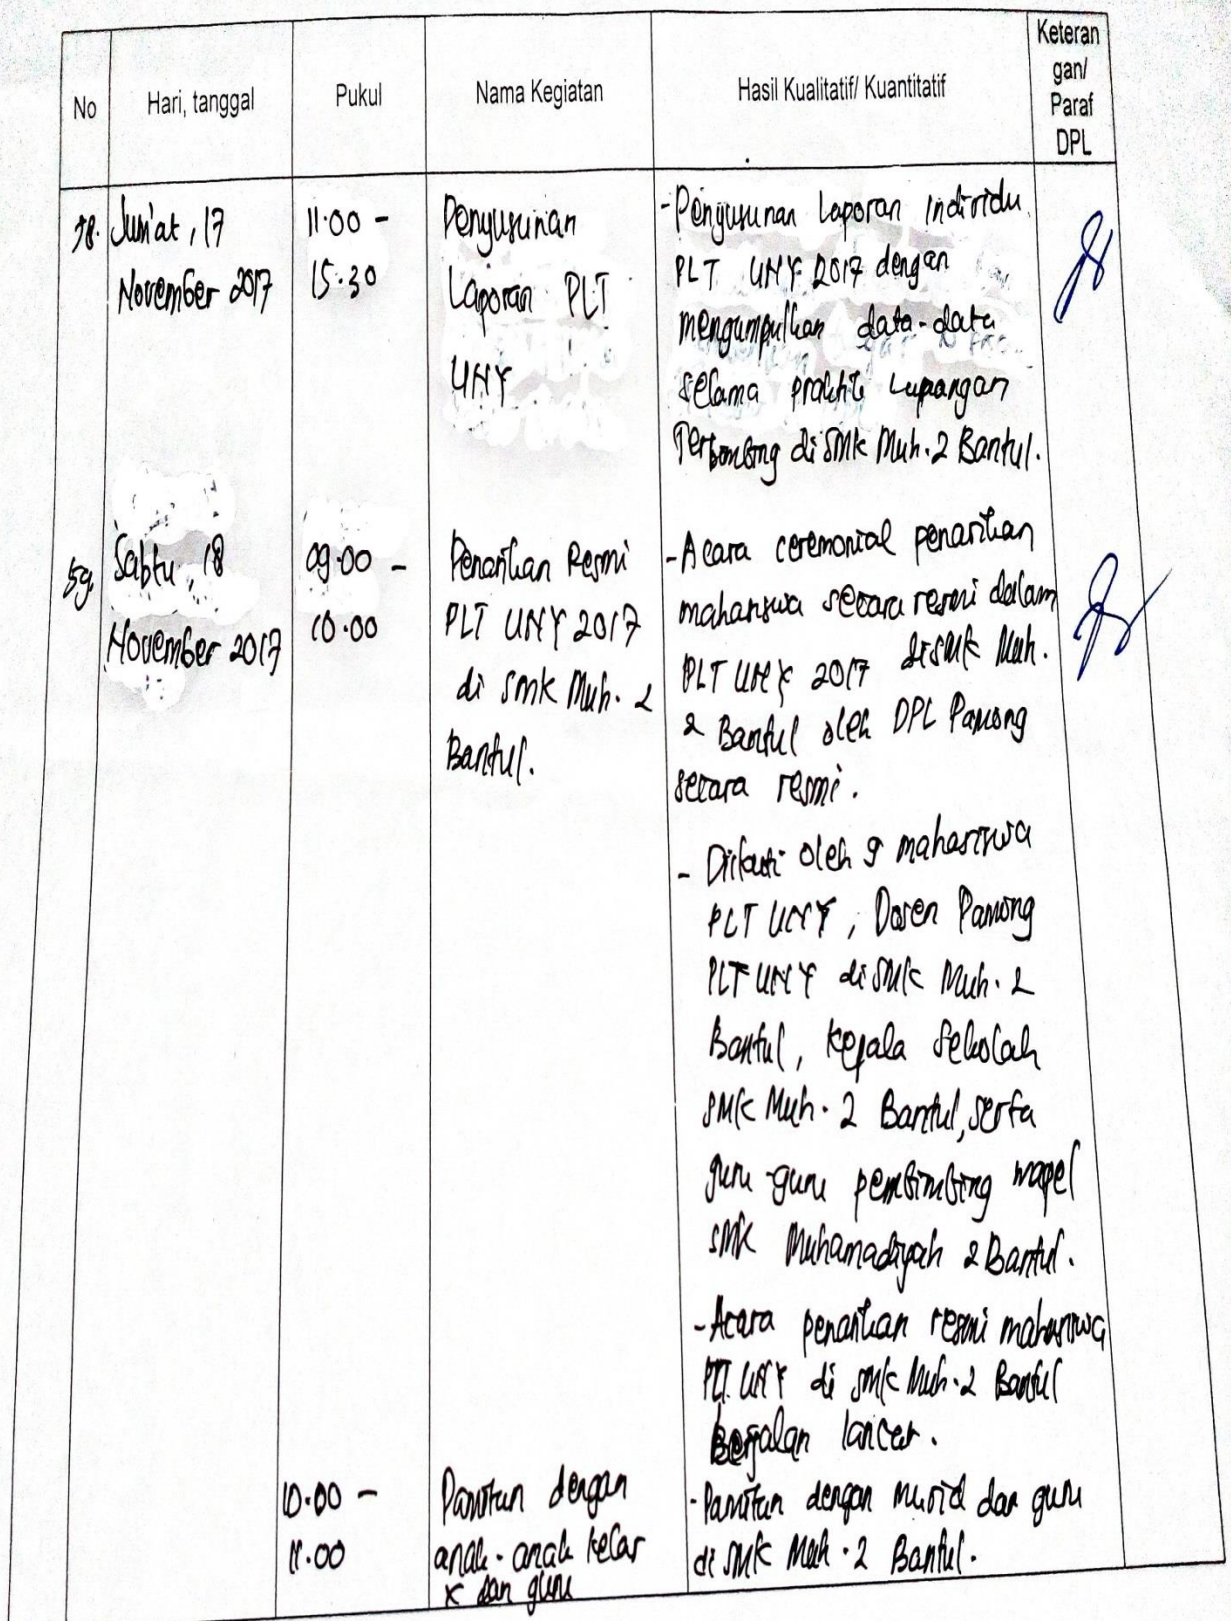 No
Hari, tanggal
Pukul
Nama Kegiatan
Hasil Kualitatif/ Kuantitatif
Keteran
gan/
Paraf
DPL
58. Jum'at, 17
November 2017
11.00 -
15.30
Penyusunan
Laporan PLT
UNY
- Penyusunan Laporan Individu
PLT UNY 2017 dengan
mengumpulkan data-data
selama praktik Lapangan
Terbimbing di SMK Muh. 2 Bantul.
59. Sabtu, 18
November 2017
09.00 -
10.00
Penarikan Resmi
PLT UNY 2017
di SMK Muh. 2
Bantul.
- Acara ceremonial penarikan
mahasiswa secara resmi dalam
PLT UNY 2017 di SMK Muh.
2 Bantul oleh DPL Pamong
secara resmi.
- Diikuti oleh 9 mahasiswa
PLT UNY, Dosen Pamong
PLT UNY di SMK Muh. 2
Bantul, Kepala Sekolah
SMK Muh. 2 Bantul, serta
guru-guru pembimbing mapel
SMK Muhamadiyah 2 Bantul.
- Acara penarikan resmi mahasiswa
PLT UNY di SMK Muh. 2 Bantul
Berjalan lancar.
10.00 -
11.00
Pamitan dengan
anak-anak kelas
X dan guru
- Pamitan dengan murid dan guru
di SMK Muh. 2 Bantul.